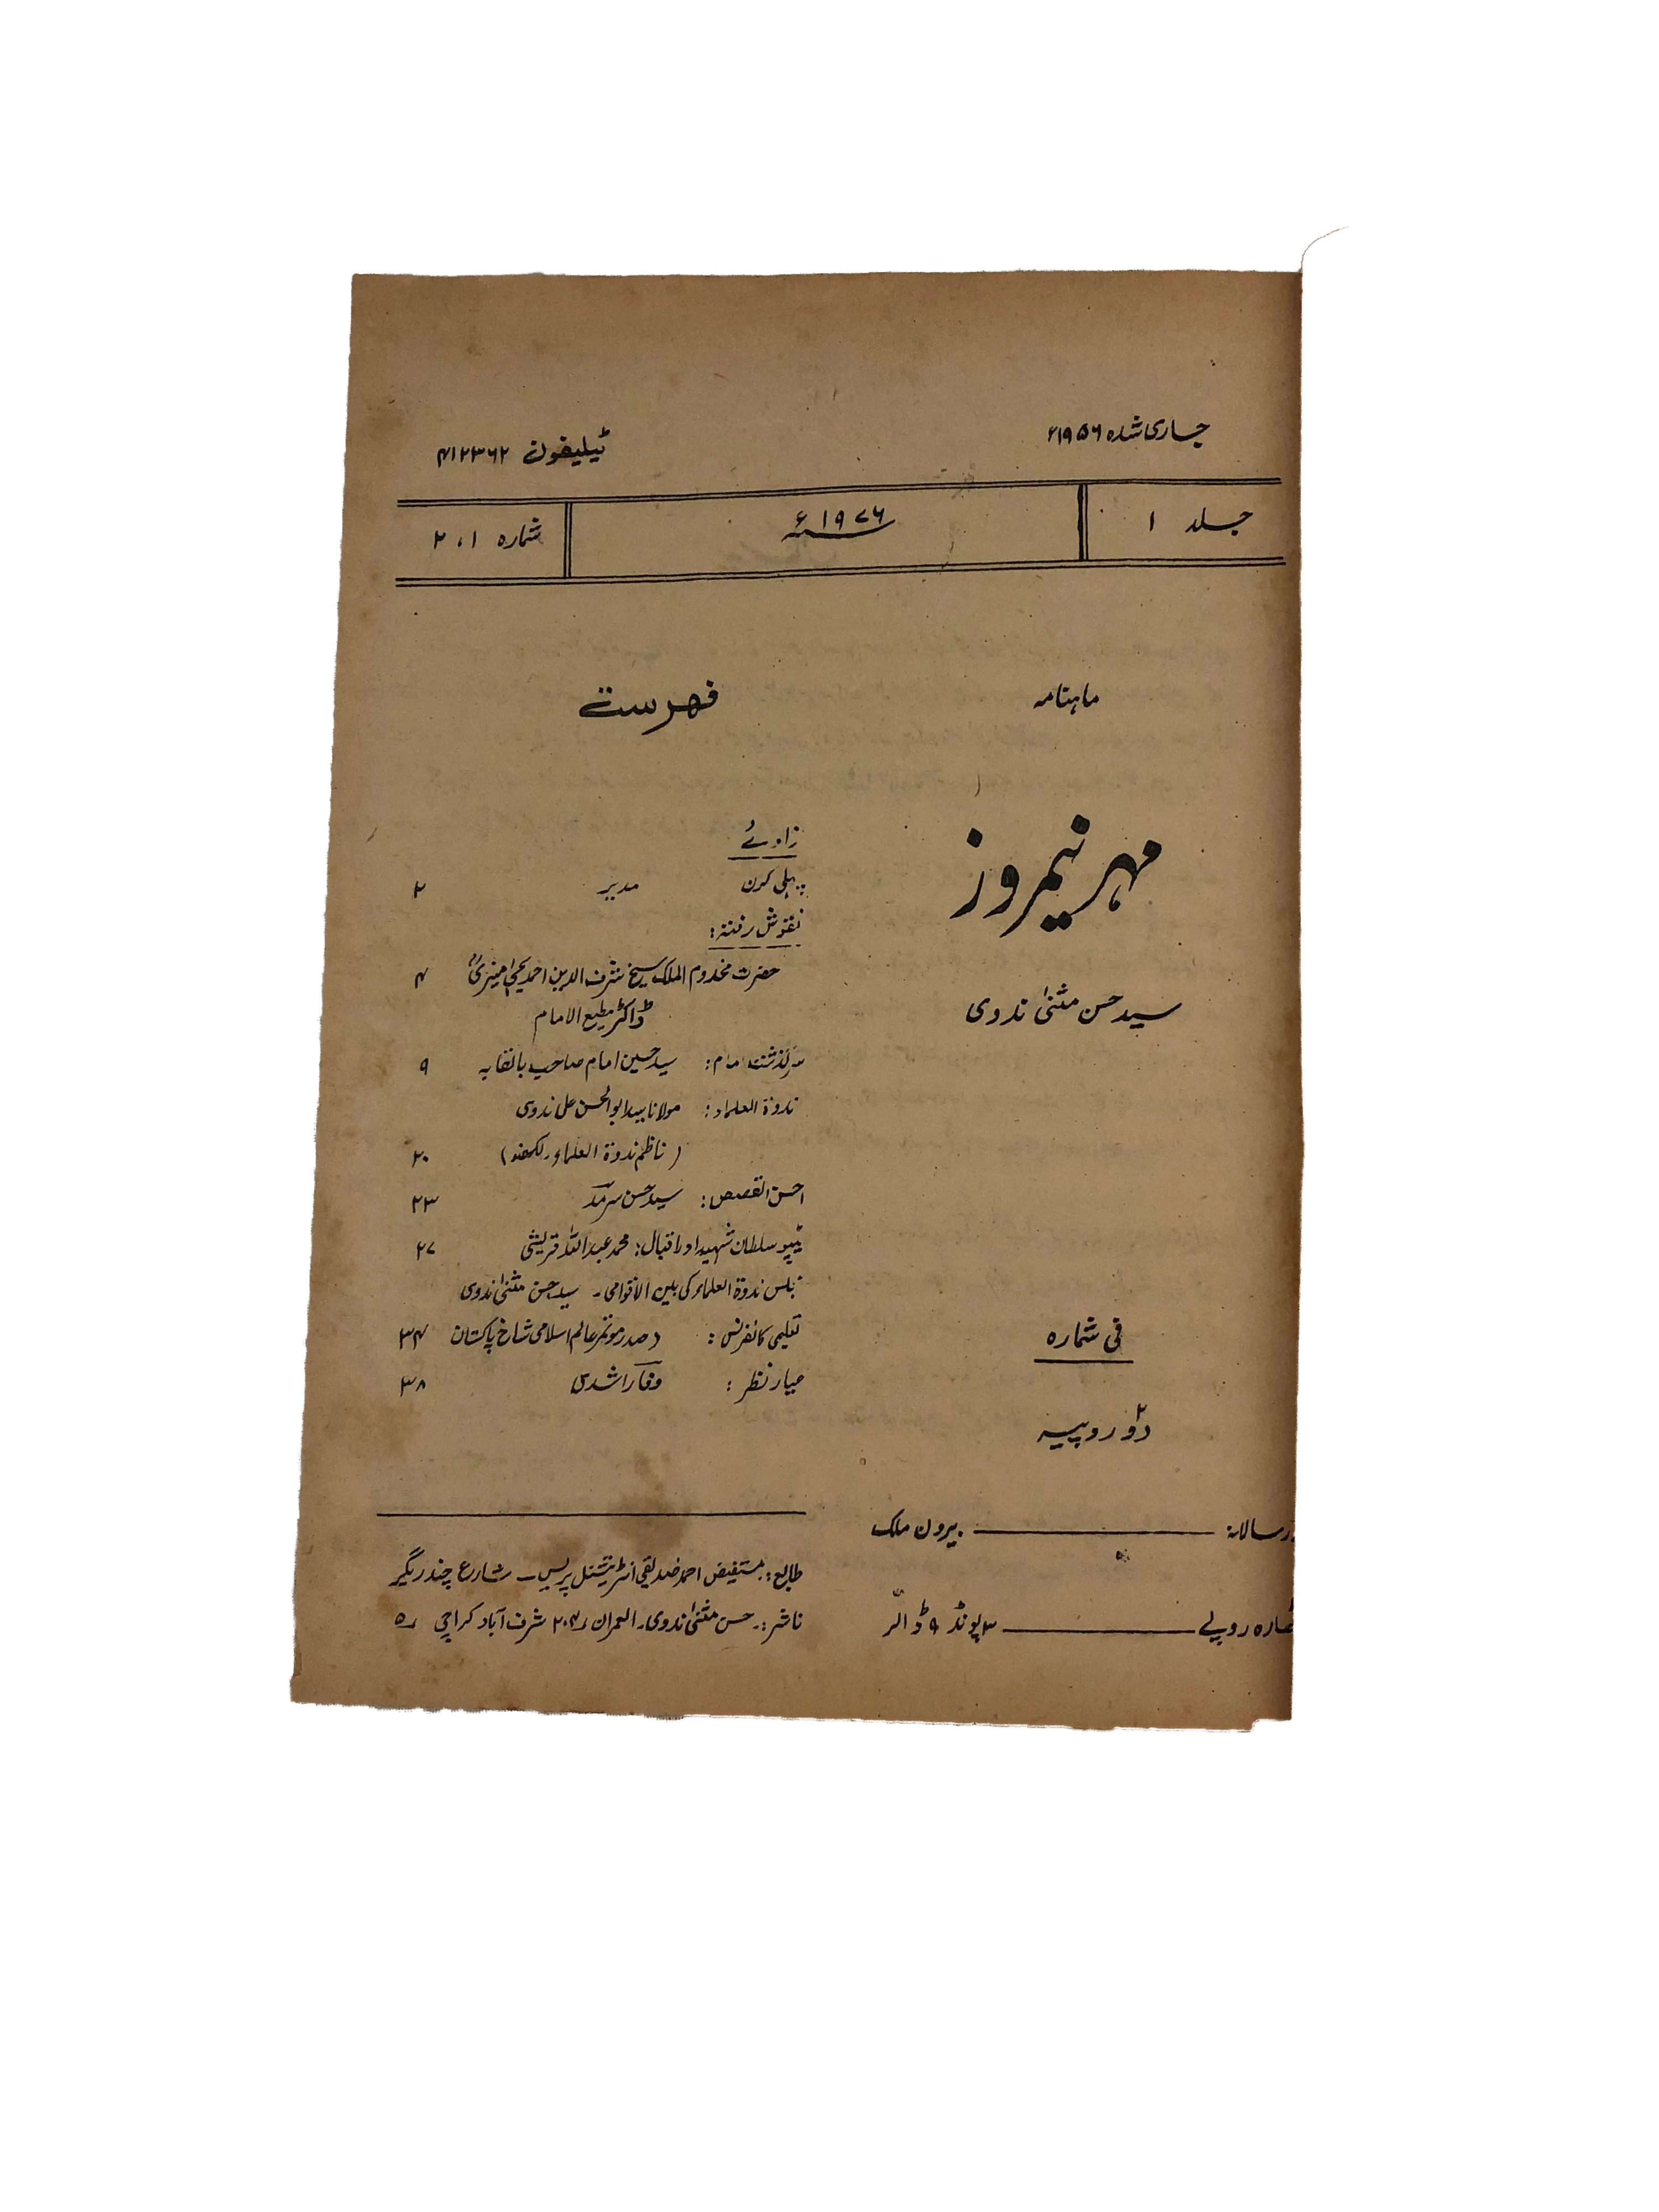 جاری شدہ ۱۹۵۶ء
ٹیلیفون ۴۱۲۳۶۲
جلد ۱
۱۹۷۶ء
شمارہ ۱، ۲
ماہنامہ
مہر نیمروز
سید حسن مثنیٰ ندوی
فی شمارہ
دو روپیہ
زر سالانہ: بیرون ملک
روپے ۳ پونڈ ۹ ڈالر
فہرست
زاوئے
پہلی کرن مدیر ۲
نقوش رفتہ:
حضرت مخدوم الملک شیخ شرف الدین احمد یحییٰ منیریؒ ۴
ڈاکٹر مطیع الامام
سرگذشت امام: سید حسین امام صاحب بالقابہ ۹
ندوۃ العلماء: مولانا سید ابوالحسن علی ندوی
(ناظم ندوۃ العلماء، لکھنؤ) ۲۰
احسن القصص: سید حسن سرمد ۲۳
ٹیپو سلطان شہید اور اقبال: محمد عبداللہ قریشی ۲۷
ندوۃ العلماء کی بین الاقوامی۔ سید حسن مثنیٰ ندوی
تعلیمی کانفرنس: (صدر موتمر عالم اسلامی شاخ پاکستان ۳۴
معیار نظر: وفا راشدی ۳۸
طابع: مستفیض احمد صدیقی انٹرنیشنل پریس۔ شارع چندریگر
ناشر:۔ حسن مثنیٰ ندوی۔ العمران ۲۰۴ شرف آباد کراچی ۵